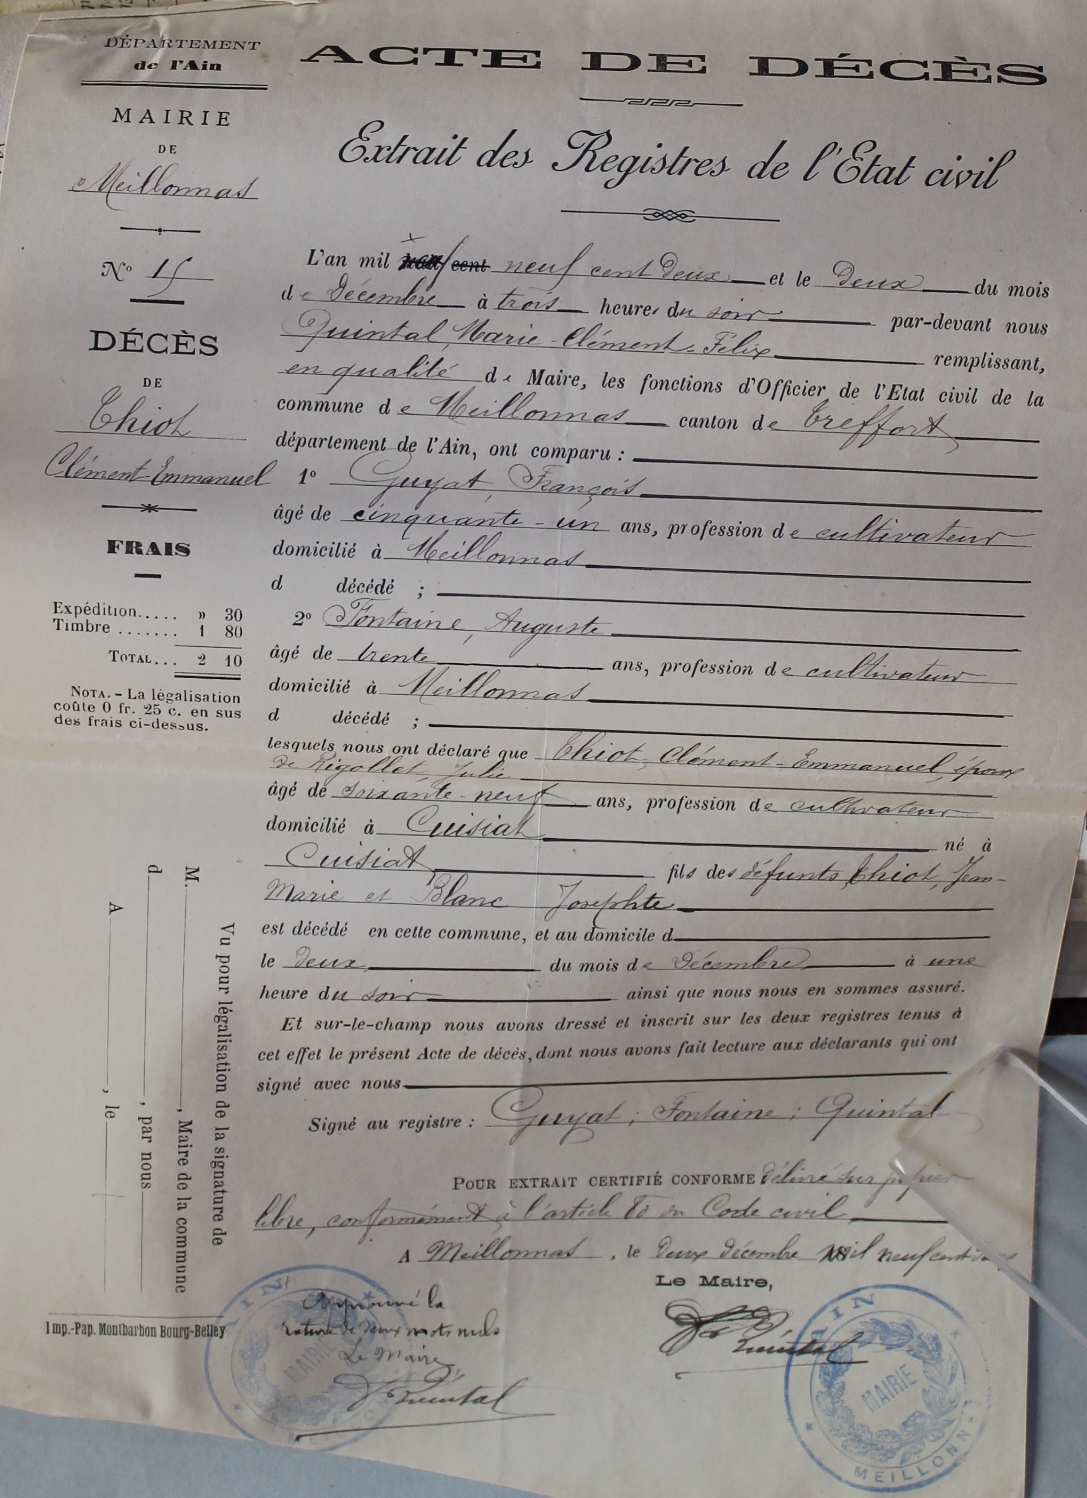 DÉPARTEMENT
de l'Ain
MAIRIE
DE
Meillonnas
N° 15
DÉCÈS
DE
Thiot
Clément-Emmanuel
FRAIS
Expédition..... » 30
Timbre ....... 1 80
TOTAL... 2 10
NOTA. - La légalisation
coûte 0 fr. 25 c. en sus
des frais ci-dessus.
Vu pour légalisation de la signature de
M. , Maire de la commune
d , par nous
A , le
Imp.-Pap. Montbarbon Bourg-Belley
ACTE DE DÉCÈS
Extrait des Registres de l'Etat civil
L'an mil cent neuf cent Deux et le Deux du mois
de Décembre à trois heures du soir par-devant nous
Quintal, Marie-Clément-Félix remplissant,
en qualité de Maire, les fonctions d'Officier de l'Etat civil de la
commune de Meillonnas canton de Treffort
département de l'Ain, ont comparu :
1° Guyat, François
âgé de cinquante-un ans, profession de cultivateur
domicilié à Meillonnas
d décédé ;
2° Fontaine, Auguste
âgé de trente ans, profession de cultivateur
domicilié à Meillonnas
d décédé ;
lesquels nous ont déclaré que Thiot, Clément-Emmanuel, époux
de Rigollet, Julie
âgé de soixante-neuf ans, profession de cultivateur
domicilié à Cuisiat né à
Cuisiat fils des défunts Thiot, Jean-
Marie et Blanc Josephte
est décédé en cette commune, et au domicile d
le deux du mois de Décembre à une
heure du soir ainsi que nous nous en sommes assuré.
Et sur-le-champ nous avons dressé et inscrit sur les deux registres tenus à
cet effet le présent Acte de décès, dont nous avons fait lecture aux déclarants qui ont
signé avec nous
Signé au registre : Guyat ; Fontaine ; Quintal
POUR EXTRAIT CERTIFIÉ CONFORME délivré sur papier
libre, conformément à l'article 80 du Code civil
A Meillonnas, le Deux Décembre mil neuf cent deux
Le Maire,
Quintal
Approuvé la
rature de deux mots nuls
Le Maire,
Quintal
AIN
MAIRIE
AIN
MAIRIE
MEILLONNAS